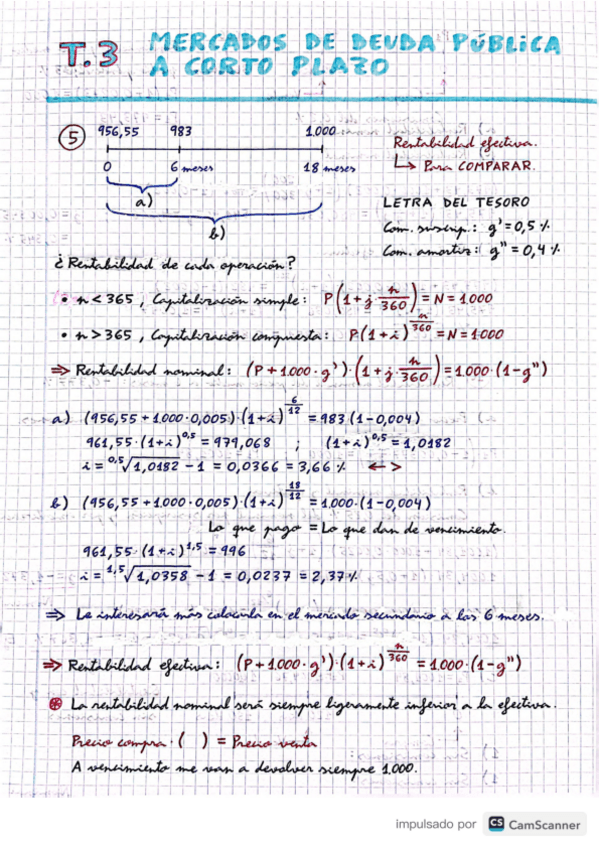 T.3 MERCADOS DE DEUDA PÚBLICA
A CORTO PLAZO
5
956,55 983 1.000
0 6 meses 18 meses
a)
b)
Rentabilidad efectiva.
↳ Para COMPARAR.
LETRA DEL TESORO
Com. suscrip.: g' = 0,5 %
Com. amortiz: g" = 0,4 %
¿Rentabilidad de cada operación?
• n < 365, Capitalización simple: P(1 + j · n/360) = N = 1.000
• n > 365, Capitalización compuesta: P(1 + i)^(n/360) = N = 1.000
⇒ Rentabilidad nominal: (P + 1.000 · g') · (1 + j · n/360) = 1.000 · (1 - g")
a) (956,55 + 1.000 · 0,005) · (1 + i)^(6/12) = 983 (1 - 0,004)
961,55 · (1 + i)^0,5 = 979,068 ; (1 + i)^0,5 = 1,0182
i = 0,5√1,0182 - 1 = 0,0366 = 3,66 % <->
b) (956,55 + 1.000 · 0,005) · (1 + i)^(18/12) = 1.000 · (1 - 0,004)
Lo que pago = Lo que dan de vencimiento.
961,55 · (1 + i)^1,5 = 996
i = 1,5√1,0358 - 1 = 0,0237 = 2,37 %
⇒ Le interesará más colocarla en el mercado secundario a los 6 meses.
⇒ Rentabilidad efectiva: (P + 1.000 · g') · (1 + i)^(n/360) = 1.000 · (1 - g")
⊛ La rentabilidad nominal será siempre ligeramente inferior a la efectiva.
Precio compra · ( ) = Precio venta
A vencimiento me van a devolver siempre 1.000.
impulsado por CS CamScanner